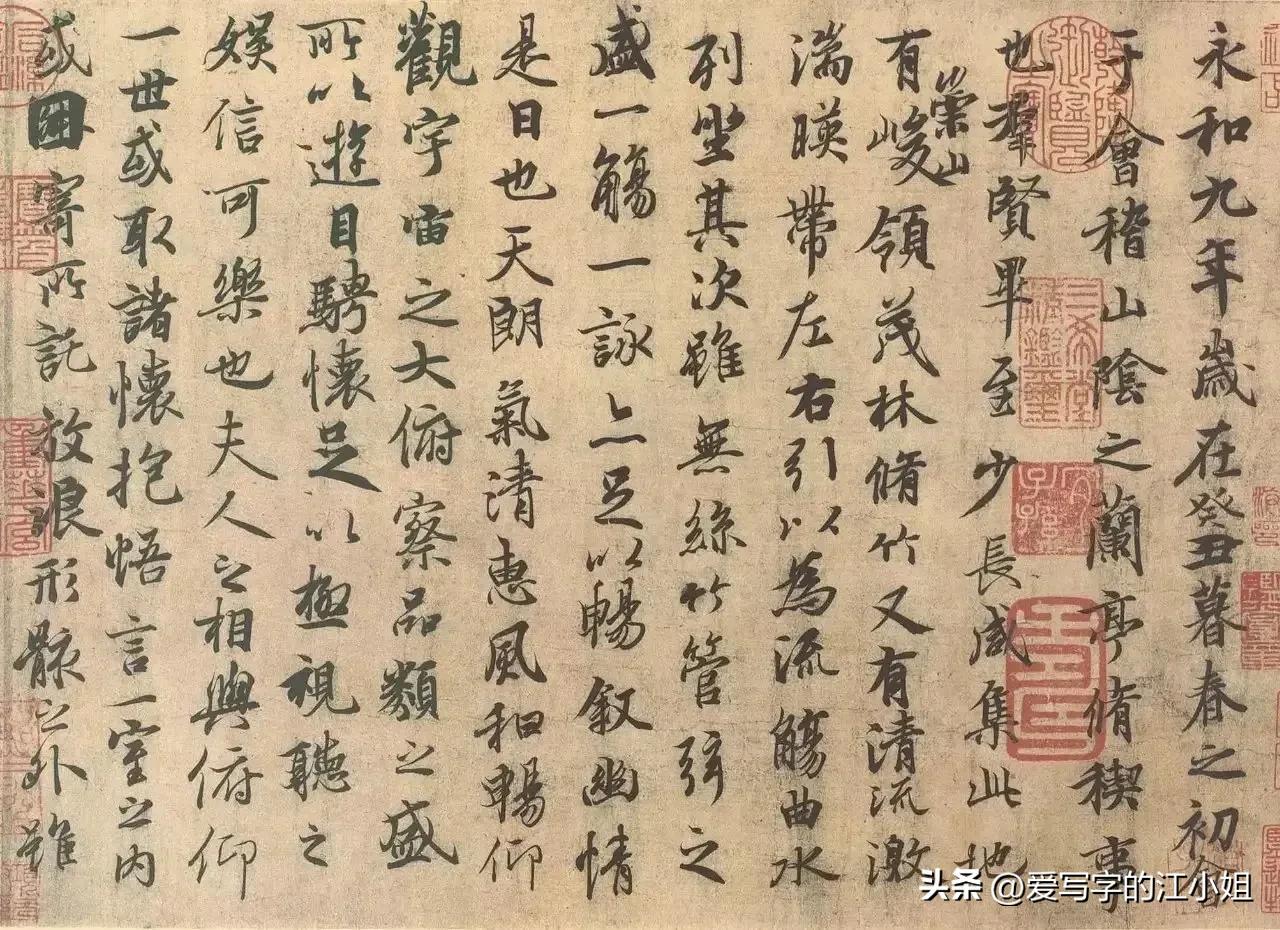 永和九年歲在癸丑暮春之初會
于會稽山陰之蘭亭脩稧事
也羣賢畢至少長咸集此地
有崇山峻領茂林脩竹又有清流激
湍暎帶左右引以為流觴曲水
列坐其次雖無絲竹管弦之
盛一觴一詠亦足以暢叙幽情
是日也天朗氣清惠風和暢仰
觀宇宙之大俯察品類之盛
所以遊目騁懷足以極視聽之
娛信可樂也夫人之相與俯仰
一世或取諸懷抱悟言一室之內
或因寄所託放浪形骸之外雖
三希堂精鑑璽
宜子孫
头条 @爱写字的江小姐